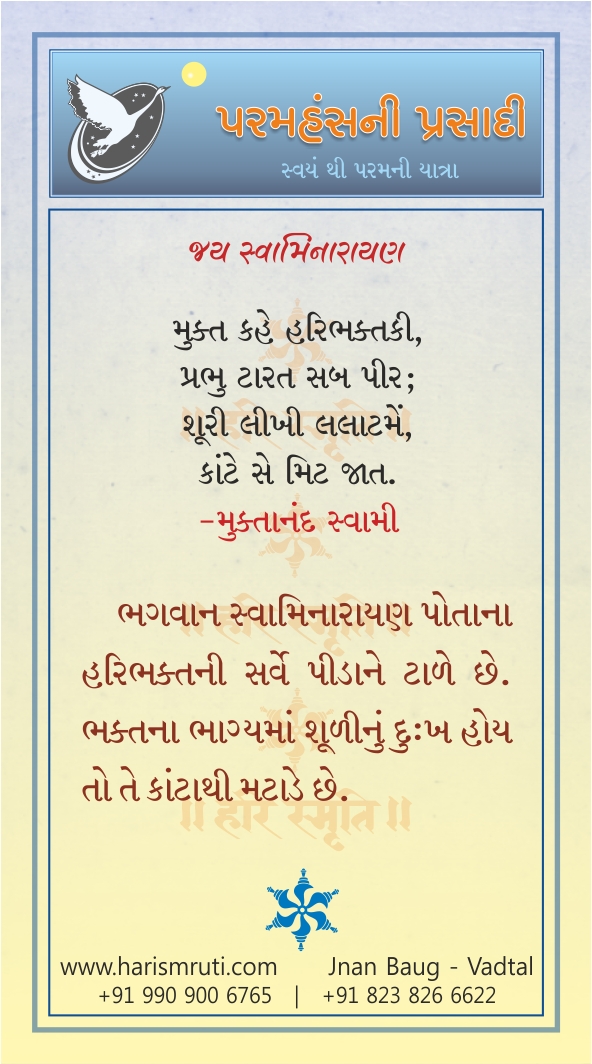 પરમહંસની પ્રસાદી
સ્વયં થી પરમની યાત્રા
જય સ્વામિનારાયણ
મુક્ત કહે હરિભક્તકી,
પ્રભુ ટારત સબ પીર;
શૂરી લીખી લલાટમેં,
કાંટે સે મિટ જાત.
-મુક્તાનંદ સ્વામી
ભગવાન સ્વામિનારાયણ પોતાના
હરિભક્તની સર્વે પીડાને ટાળે છે.
ભક્તના ભાગ્યમાં શૂળીનું દુઃખ હોય
તો તે કાંટાથી મટાડે છે.
॥ हरि स्मृति ॥
www.harismruti.com Jnan Baug - Vadtal
+91 990 900 6765 | +91 823 826 6622